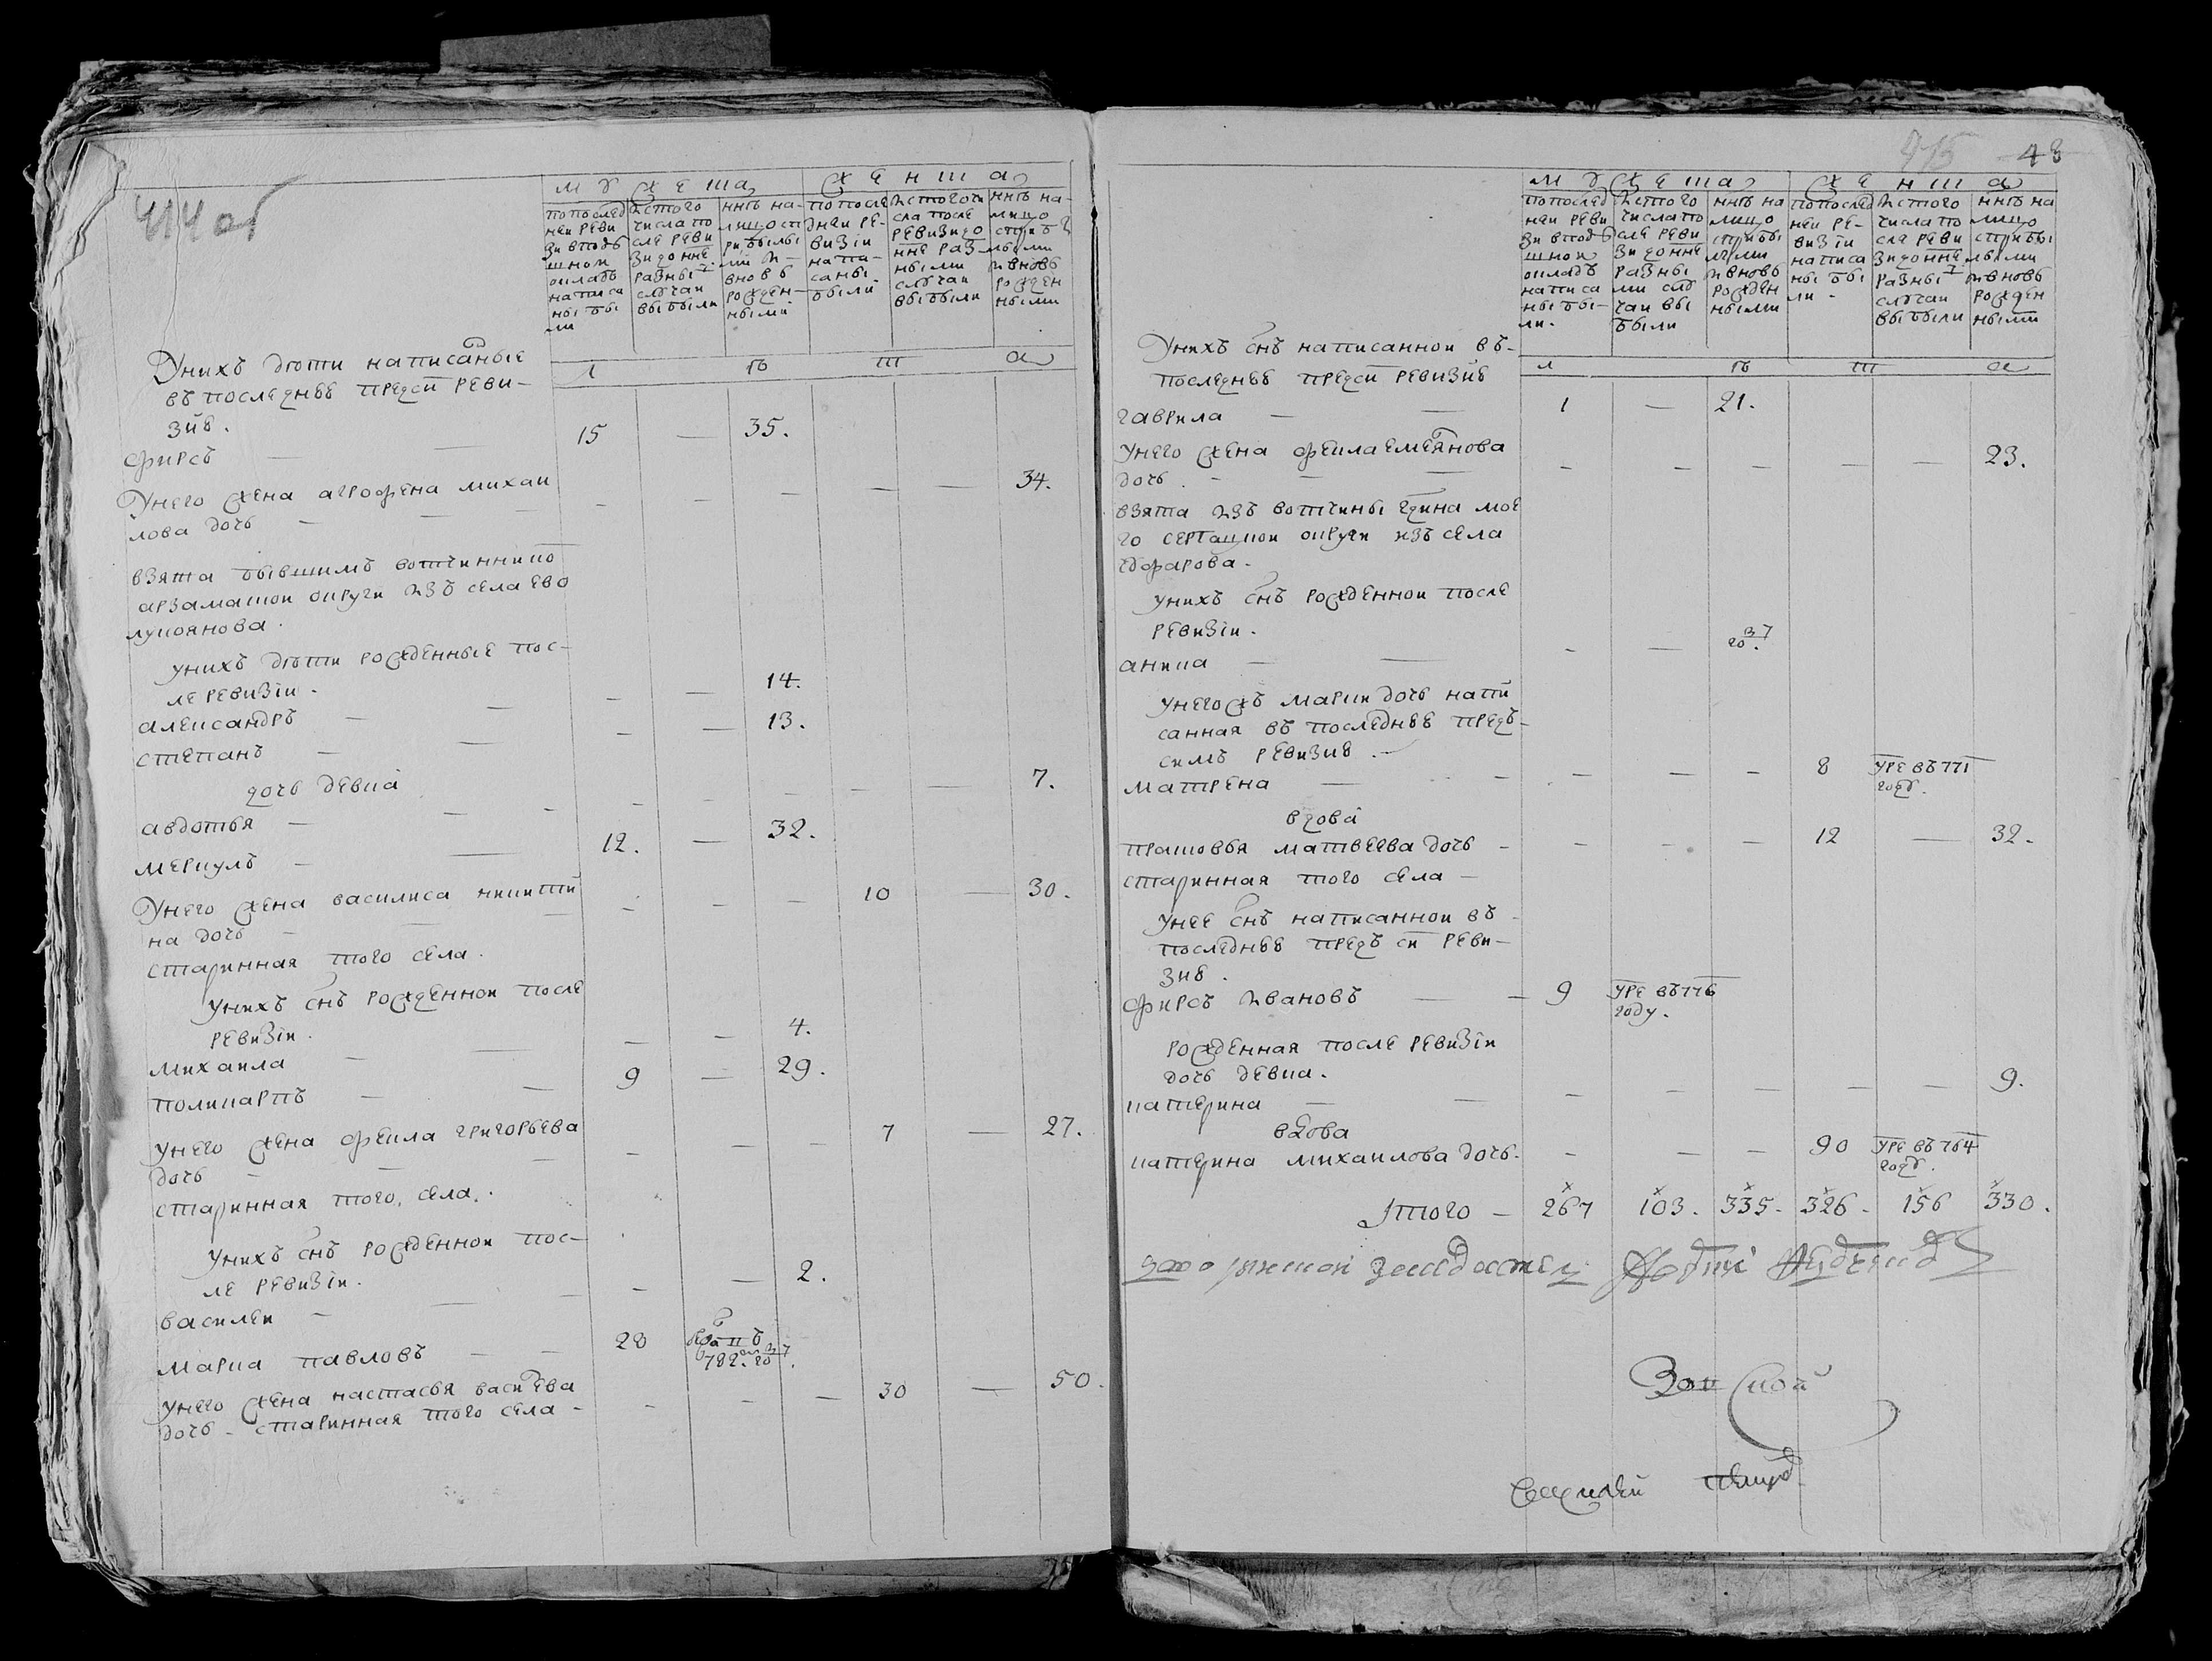 414 об
мужеска
женска
попослед
ней реви
зи вподу
шном
окладѣ
написа
ны бы
ли
ис того
числа по
сле реви
зи до нне.
разны
случаи
выбыли
ннѣ на-
лицо сп
рибылы
ми и
вновь
рожден-
ными
попосле
дней ре-
визіи
напи-
саны
были
ис того чи
сла после
ревизи до
нне раз-
ными
случаи
выбыли
ннѣ на-
лицо
сприб
лыми
и вновь
рожден
ными
л ѣ т а
Унихъ дѣти написаные
въ последнее пред си реви-
зие.
фирсъ — — 15 — 35.
Унего жена агрофена михаи
лова дочь — — — — — — — 34.
взята бывшимъ вотчиннико
арзамаской округи изъ села ево
лукоянова.
унихъ дѣти рожденные пос-
ле ревизіи.
александръ — — — — 14.
степанъ — — — — 13.
дочь девка
авдотья — — — — — — — 7.
меркулъ — — 12. — 32.
Унего жена василиса никити
на дочь — — — — — 10 — 30.
старинная того села.
унихъ снъ рожденной после
ревизіи.
михаила — — — — 4.
поликарпъ — — 9 — 29.
унего жена фекла григорьева
дочь — — — — — 7 — 27.
старинная того села.
унихъ снъ рожденной пос-
ле ревизіи.
василеи — — — — 2.
марка павловъ — — 28
782.
унего жена настасья васильева
дочь – старинная того села – — — — 30 — 50.
415 43
мужеска
женска
попослед
ней реви
зи вподу
шном
окладѣ
написа
ны бы-
ли.
ис того
числа по
сле реви
зи до нне
разны
ми слу
чаи вы
были
ннѣ на
лицо
сприбы
лыми
и вновь
рожден
ными
попослед
ней ре-
визіи
написа
ны бы
ли -
ис того
числа по
сле реви
зи до нне.
разны
случаи
выбыли
ннѣ на
лицо
сприбы
лыми
и вновь
рожден
ными
л ѣ т а
Унихъ снъ написанной въ-
последнее пред си ревизие
гаврила — — 1 — 21.
унего жена фекла емелянова
дочь. — — — — — — — 23.
взята изъ вотчины гдина мое
го сергацкой округи изъ села
унихъ снъ рожденной после
ревизіи.
аника — — — —
унегожъ марки дочь напи
санная въ последнее предъ-
симъ ревизие.
матрена — — — — — 8 умре въ 771
году.
вдова
прасковья матвеева дочь – — — — 12 — 32.
старинная того села —
унее снъ написанной въ
последнее предъ си реви-
зие.
фирсъ ивановъ — — 9 умре въ 776
году.
рожденная после ревизіи
дочь девка.
катерина — — — — — — — 9.
вдова
катерина михаилова дочь. — — — 90 умре въ 764
году.
Итого — 267 103. 335. 326. 156 330.